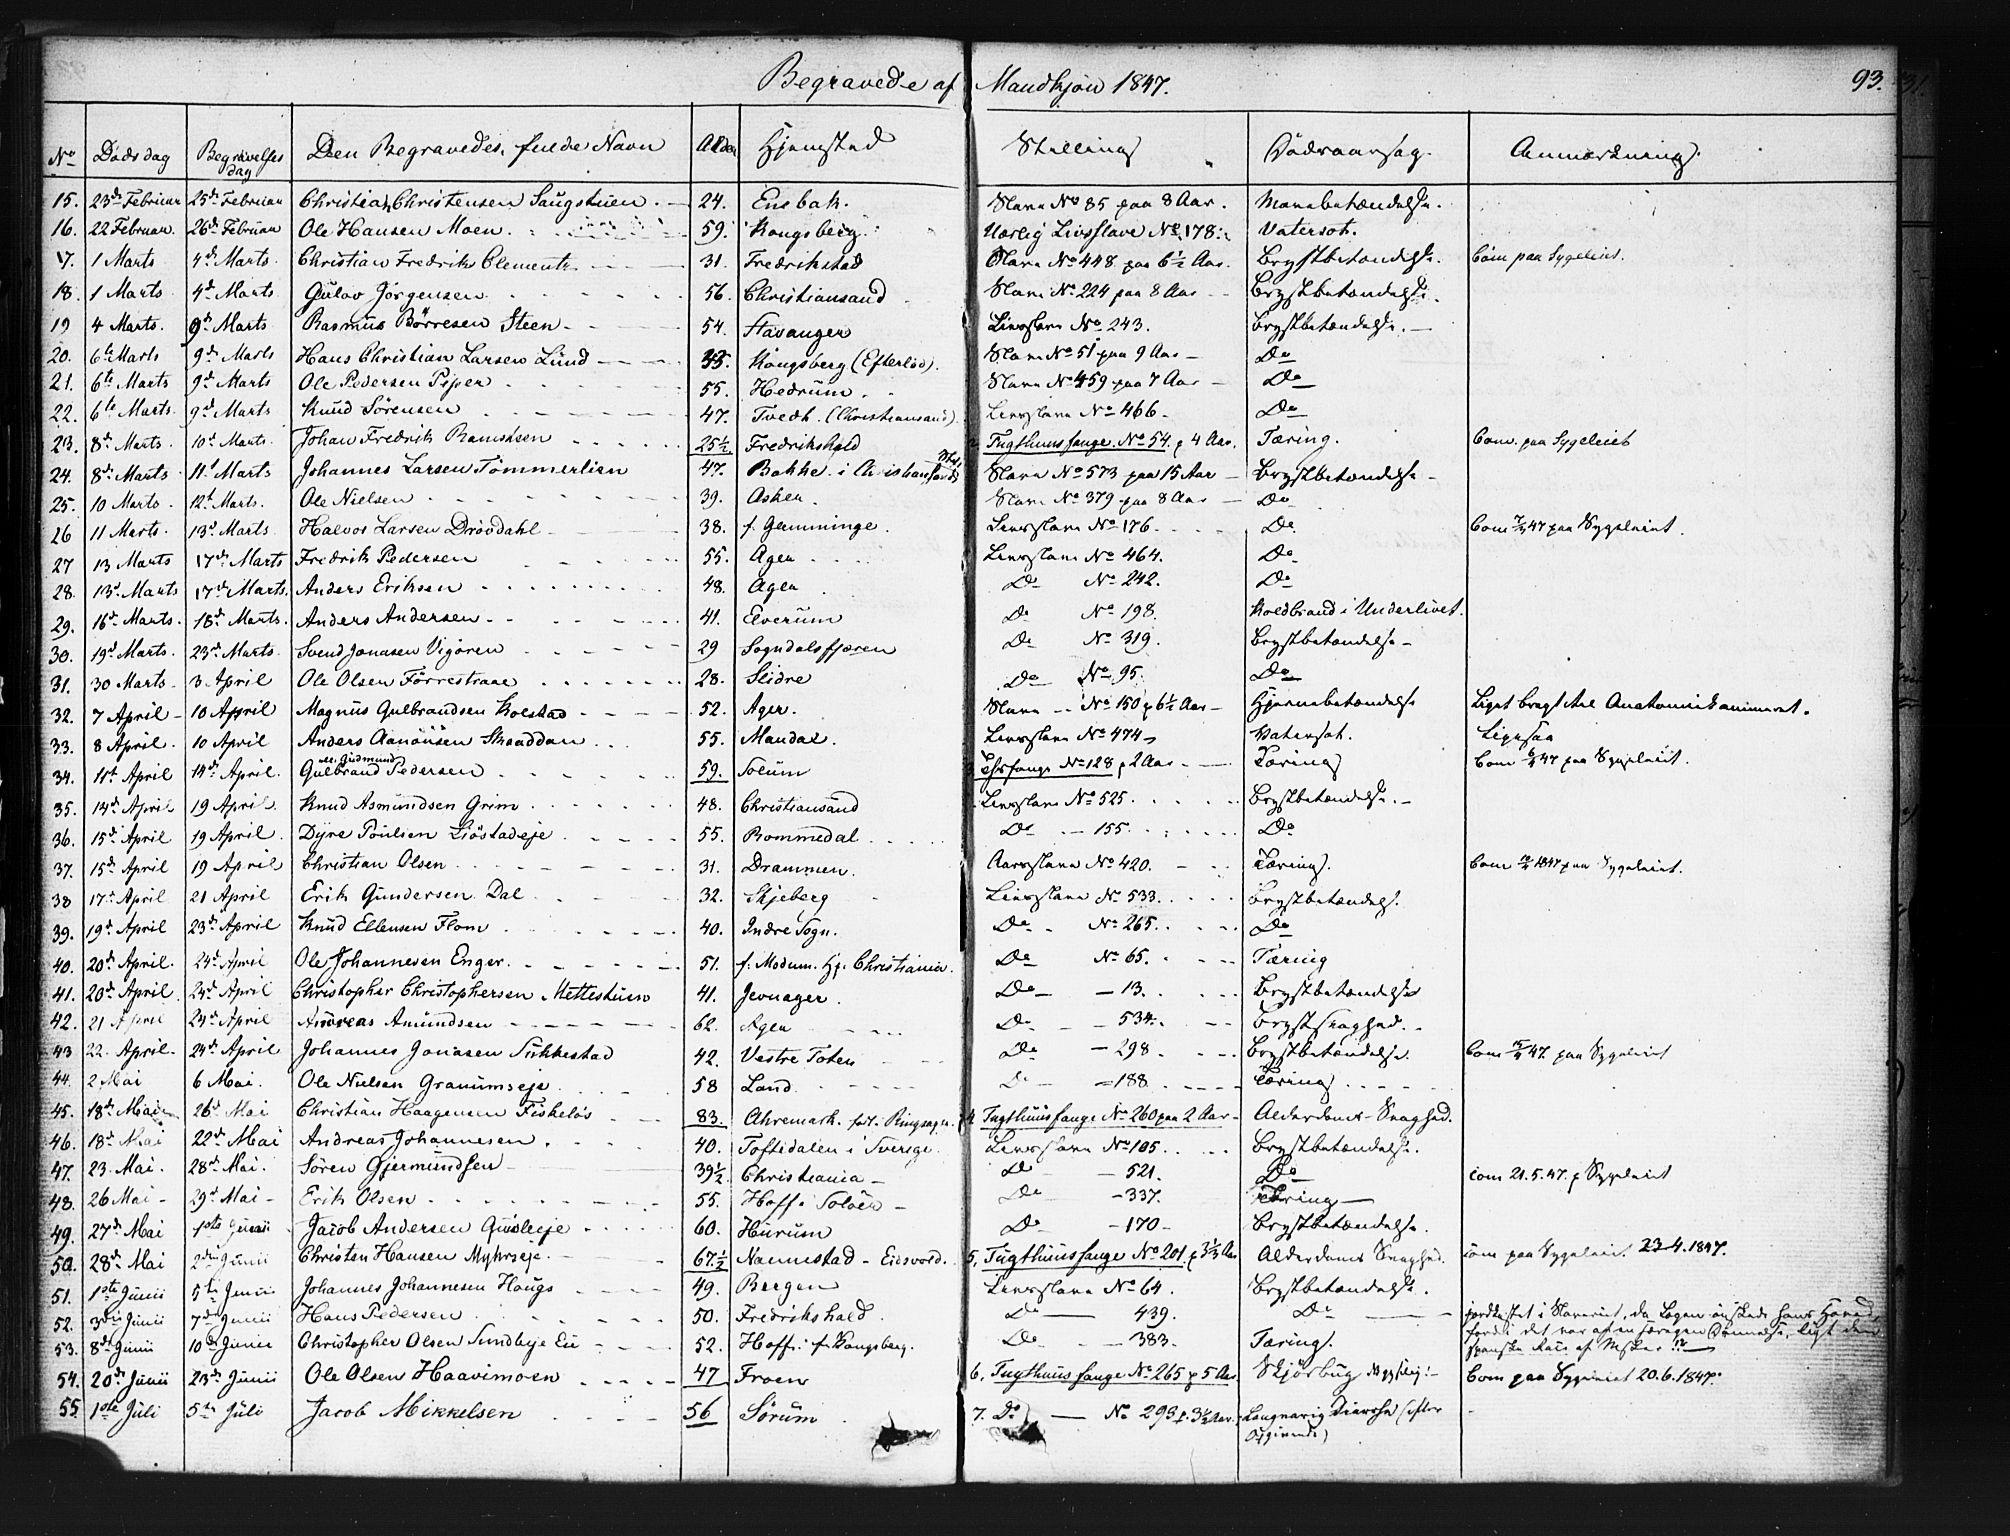 Begravede af Mandkjøn 1847. 93.
No Dødsdag Begravelses dag Den Begravedes fulde Navn Alder Hjemsted Stilling Dødsaarsag. Anmærkning.
15. 23de Februar 25de Februar Christian Christensen Saugstuen. 24. Enebak. Slave No 85 paa 8 Aar. Mavebetændelse.
16. 22 Februar. 26de Februar Ole Hansen Moen. 59. Kongsberg. Uærlig Livsslave No 178. Vatersot.
17. 1 Marts 4de Marts. Christian Fredrik Clement 31. Fredrikstad Slave No 448 paa 6½ Aar. Brystbetændelse. Com paa Sygeleiet.
18. 1 Marts 4de Marts Gulov Jörgensen 56. Christiansand Slave No 224 paa 8 Aar Brystbetændelse.
19 4 Marts. 9de Marts Rasmus Börresen Steen 54. Stavanger Livsslave No 243. Brystbetændelse.
20. 6te Marts 9de Marts Hans Christian Larsen Lund Kongsberg (Efterlöd). Slave No 51 paa 9 Aar Do
21. 6te Marts 9de Marts Ole Pedersen Piper 55. Hedrum. Slave No 459 paa 7 Aar Do
22. 6te Marts. 9de Marts Knud Sörensen 47. Tvedt. (Christiansand) Livsslave No 466 Do
23. 8de Marts. 10de Marts. Johan Fredrik 25½ Fredrikshald 2. Tugthuusfange. No 54. p 4 Aar. Tæring. Com. paa Sygeleiet
24. 8de Marts 11te Marts Johannes Larsen Tömmerlien 47. Bakke i Christiansands Stift. Slave No 573 paa 15 Aar Brystbetændelse
25. 10 Marts. 12te Marts. Ole Nielsen 39. Asker. Slave No 379 paa 8 Aar Do
26 11 Marts. 13de Marts Halvor Larsen Drövdahl 38. f. Gemminge. Livsslave No 176 Do Com 7/3 47 paa Sygeleiet.
27 13 Marts 17de Marts Fredrik Pedersen 55. Agen Livsslave No 464. Do
28. 13de Marts 17de Marts. Anders Eriksen 48. Agen Do No 242. Do
29. 16de Marts. 18de Marts. Anders Andersen 41. Elverum Do No 198. Koldbrand i Underlivet.
30. 19de Marts. 23de Marts Svend Jonasen Vigören 29 Sogndalsfjæren Do No 319. Brystbetændelse
31. 30 Marts 3 April Ole Olsen Förrestraae 28. Slidre Do No 95. Do
32. 7 April 10 April Magnus Gulbrandsen Kolstad 52. Ager. Slave No 150 p 6½ Aar Hjernebetændelse Liget bragt til Anatomikammeret.
33. 8 April. 10 April Anders Aanöusen Skraddan 55. Mandal. Livsslave No 474 Vatersot. Ligesaa
34. 11te April 14de April. Gulbrand al. Gudmund Pedersen 59. Solum 3. Thsfange No 128 p 2 Aar Tæring Com 6/4 47 paa Sygeleiet.
35. 14de April 19 April Knud Asmundsen Grim 48. Christiansand Livsslave No 525. Brystbetændelse.
36. 15de April 19 April. Dyre Poulsen Liöstadeje 55. Rommedal Do 155. Do
37. 15de April 19 April Christian Olsen 31. Drammen. Aarsslave No 420. Tæring. Com 1847 paa Sygeleiet.
38 17de April 21 April Erik Gundersen Dal 32. Skjeberg Livsslave No 533. Brystbetændelse
39. 19de April 23de April Knud Ellensen Flom 40. Indre Sogn. Do No 265. Do
40. 20de April. 24de April Ole Johannesen Enger. 51. f. Modum. Hj. Christiania. Do No 65. Tæring
41. 20de April. 24de April Christopher Christophersen Mettestuen 41. Jevnager. Do 13. Brystbetændelse
42. 21 April 24de April Andreas Amundsen 62. Agen Do 534. Brystsvaghed.
43 22. April. 24de April Johannes Jonasen Sukkestad 42. Vestre Toten Do 298. Brystbetændelse. Com 47 paa Sygeleiet
44. 2 Mai 6 Mai. Ole Nielsen Granumseje 58 Land. Do 188 Tæring
45. 18de Mai 26de Mai Christian Haagensen Fiskelös 83. Ahremark. föd. Ringsager. 4. Tugthuusfange No 260 paa 2 Aar Alderdoms-Svaghed.
46. 18de Mai 22de Mai Andreas Johannesen. 40. Toftedalen i Sverige. Livsslave No 105. Brystbetændelse.
47. 23. Mai. 28de Mai. Sören Gjermundsen 39½ Christiania Do 521. Do com 21.5.47. p Sygeleiet
48. 26 Mai 29de Mai Erik Olsen 55. Hoff i Solöer Do 337. Tæring
49. 27de Mai 1ste Junii Jacob Andersen 60. Hurum Do 170 Brystbetændelse.
50. 28de Mai 2den Junii Christen Hansen Myhrseje. 67½ Nannestad - Eidsvold. 5. Tugthuusfange No 201. p 3½ Aar Alderdoms Svaghed. com paa Sygeleiet 23.4.1847.
51. 1ste Junii 5te Junii Johannes Johannesen Haugs 49. Bergen Livsslave No 64. Brystbetændelse.
52. 3die Junii 7de Junii Hans Pedersen 50. Fredrikshald. Do 439. Do jordkastet i Slaveriet, da Lægen önskede hans Hoved, fordi det var af en særegen Dannelse, ligt den spanske Race af Msker. !?
53. 8de Junii 10de Junii Christopher Olsen Sundbeje Eu 52. Hoff. f. Kongsberg. Do 383. Tæring.
54. 20de Junii 23de Junii Ole Olsen Haavimoen 47 Froen 6. Tugthuusfange No 265 p 5 Aar Skjörbug Com paa Sygeleiet 20.6.1847.
55 1ste Juli 5te Juli Jacob Mikkelsen 56 Sörum 7. Do No 293 p. 3½ Aar. Langvarig Diarrhe (efter Opgivende)